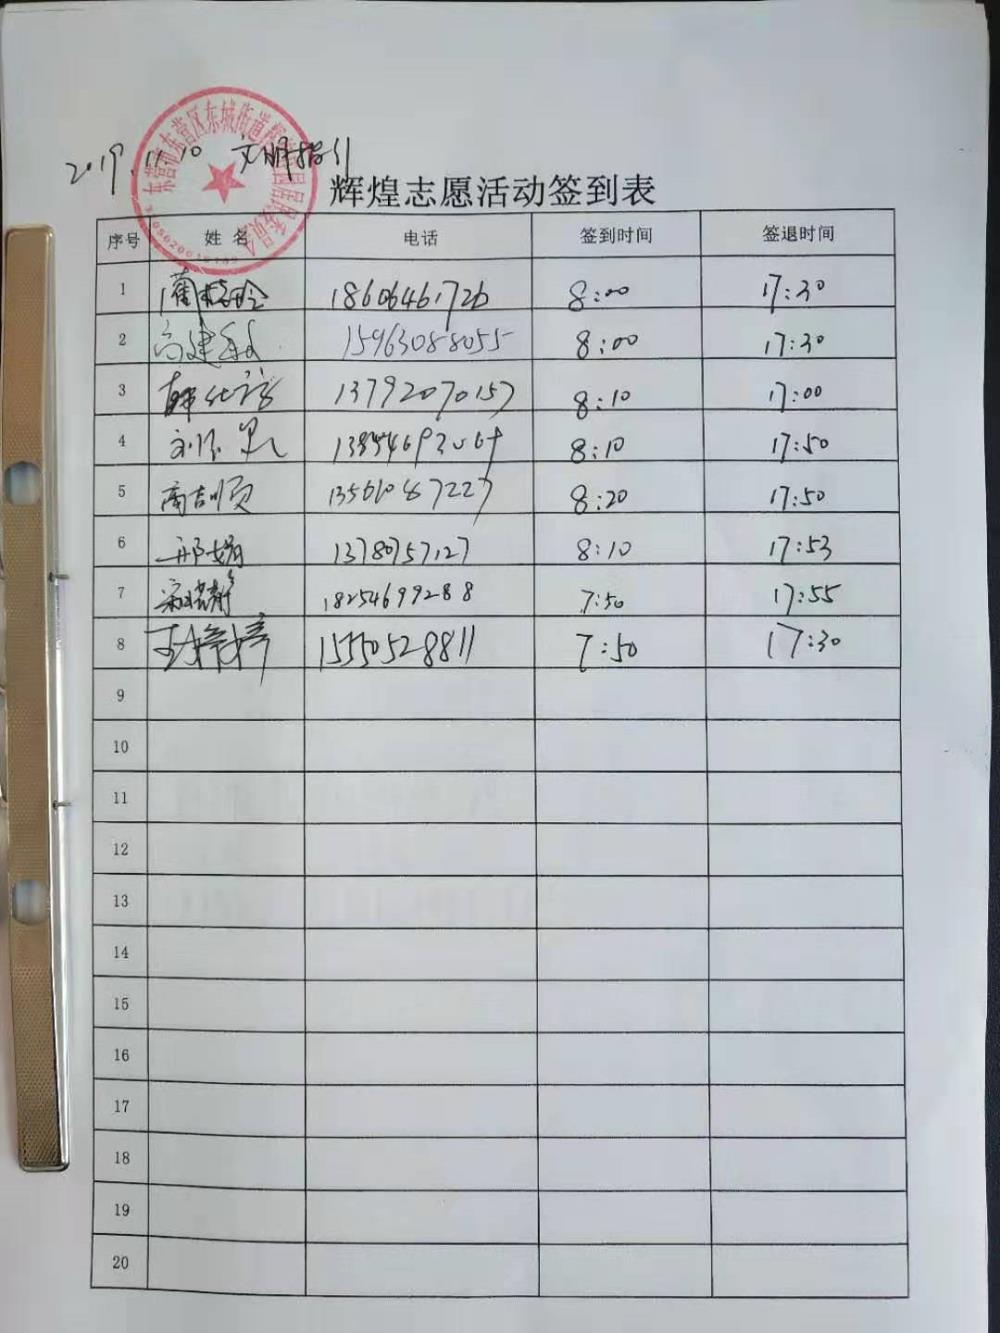 2019.11.10 文明指引
辉煌志愿活动签到表
序号 姓名 电话 签到时间 签退时间
1 18606461726 8:00 17:30
2 高建 15963088055 8:00 17:30
3 韩 13792070157 8:10 17:00
4 刘 8:10 17:50
5 商吉顺 13561087227 8:20 17:50
6 邢娟 13780757127 8:10 17:53
7 18254699288 7:50 17:55
8 王婷婷 15550528811 7:50 17:30
9
10
11
12
13
14
15
16
17
18
19
20